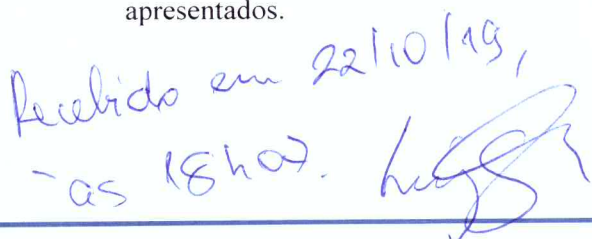 apresentados.
Recebido em 22/10/19,
às 18h07.